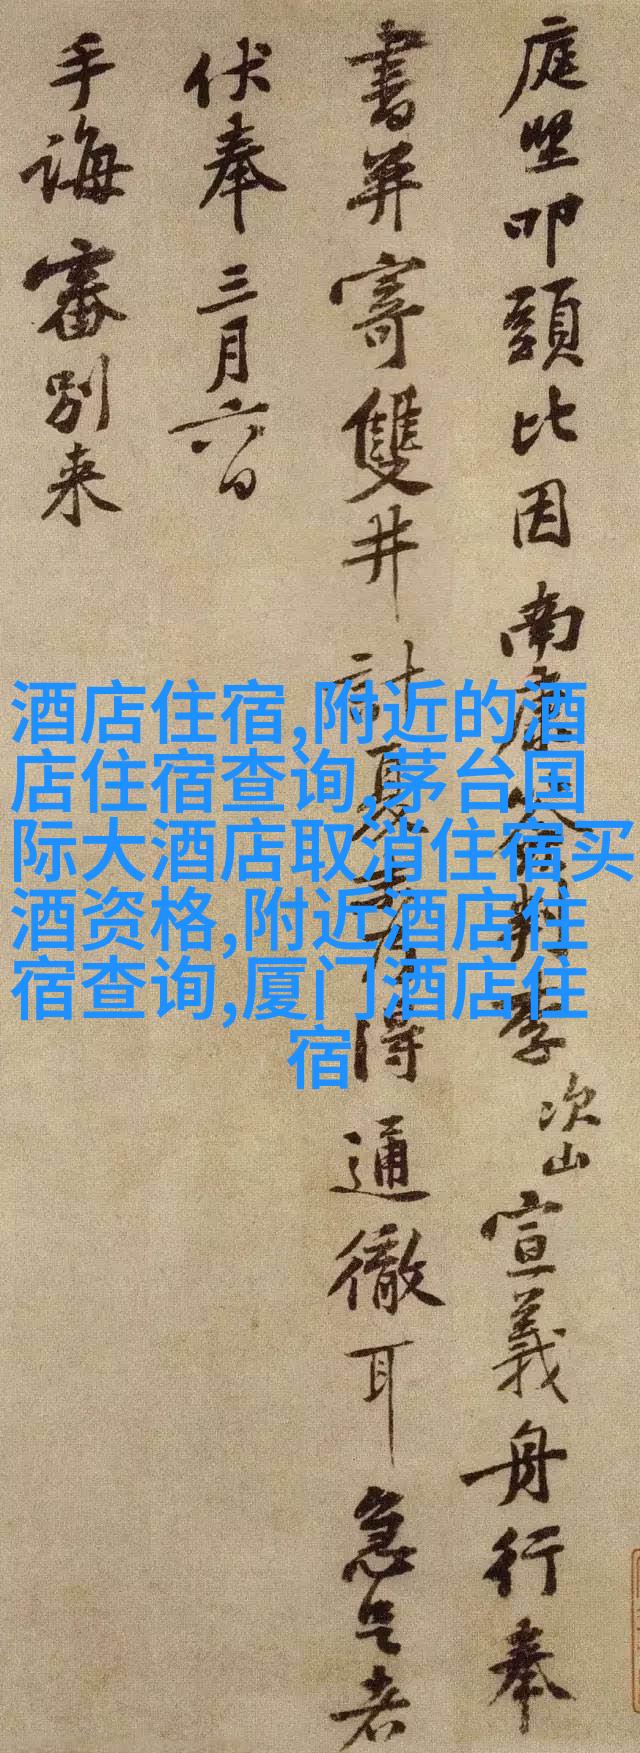 庭堅叩頭比因南康判李次山宣義舟行奉
書并寄雙井計夏得通徹耳急足者
伏奉三月六日
手誨審別来
酒店住宿,附近的酒
店住宿查询,茅台国
际大酒店取消住宿买
酒资格,附近酒店住
宿查询,厦门酒店住
宿